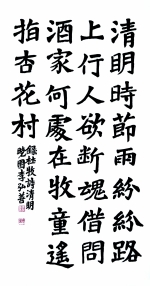 清明時節雨紛紛路
上行人欲断魂借問
酒家何處在牧童遙
指杏花村
錄杜牧詩清明
李弘